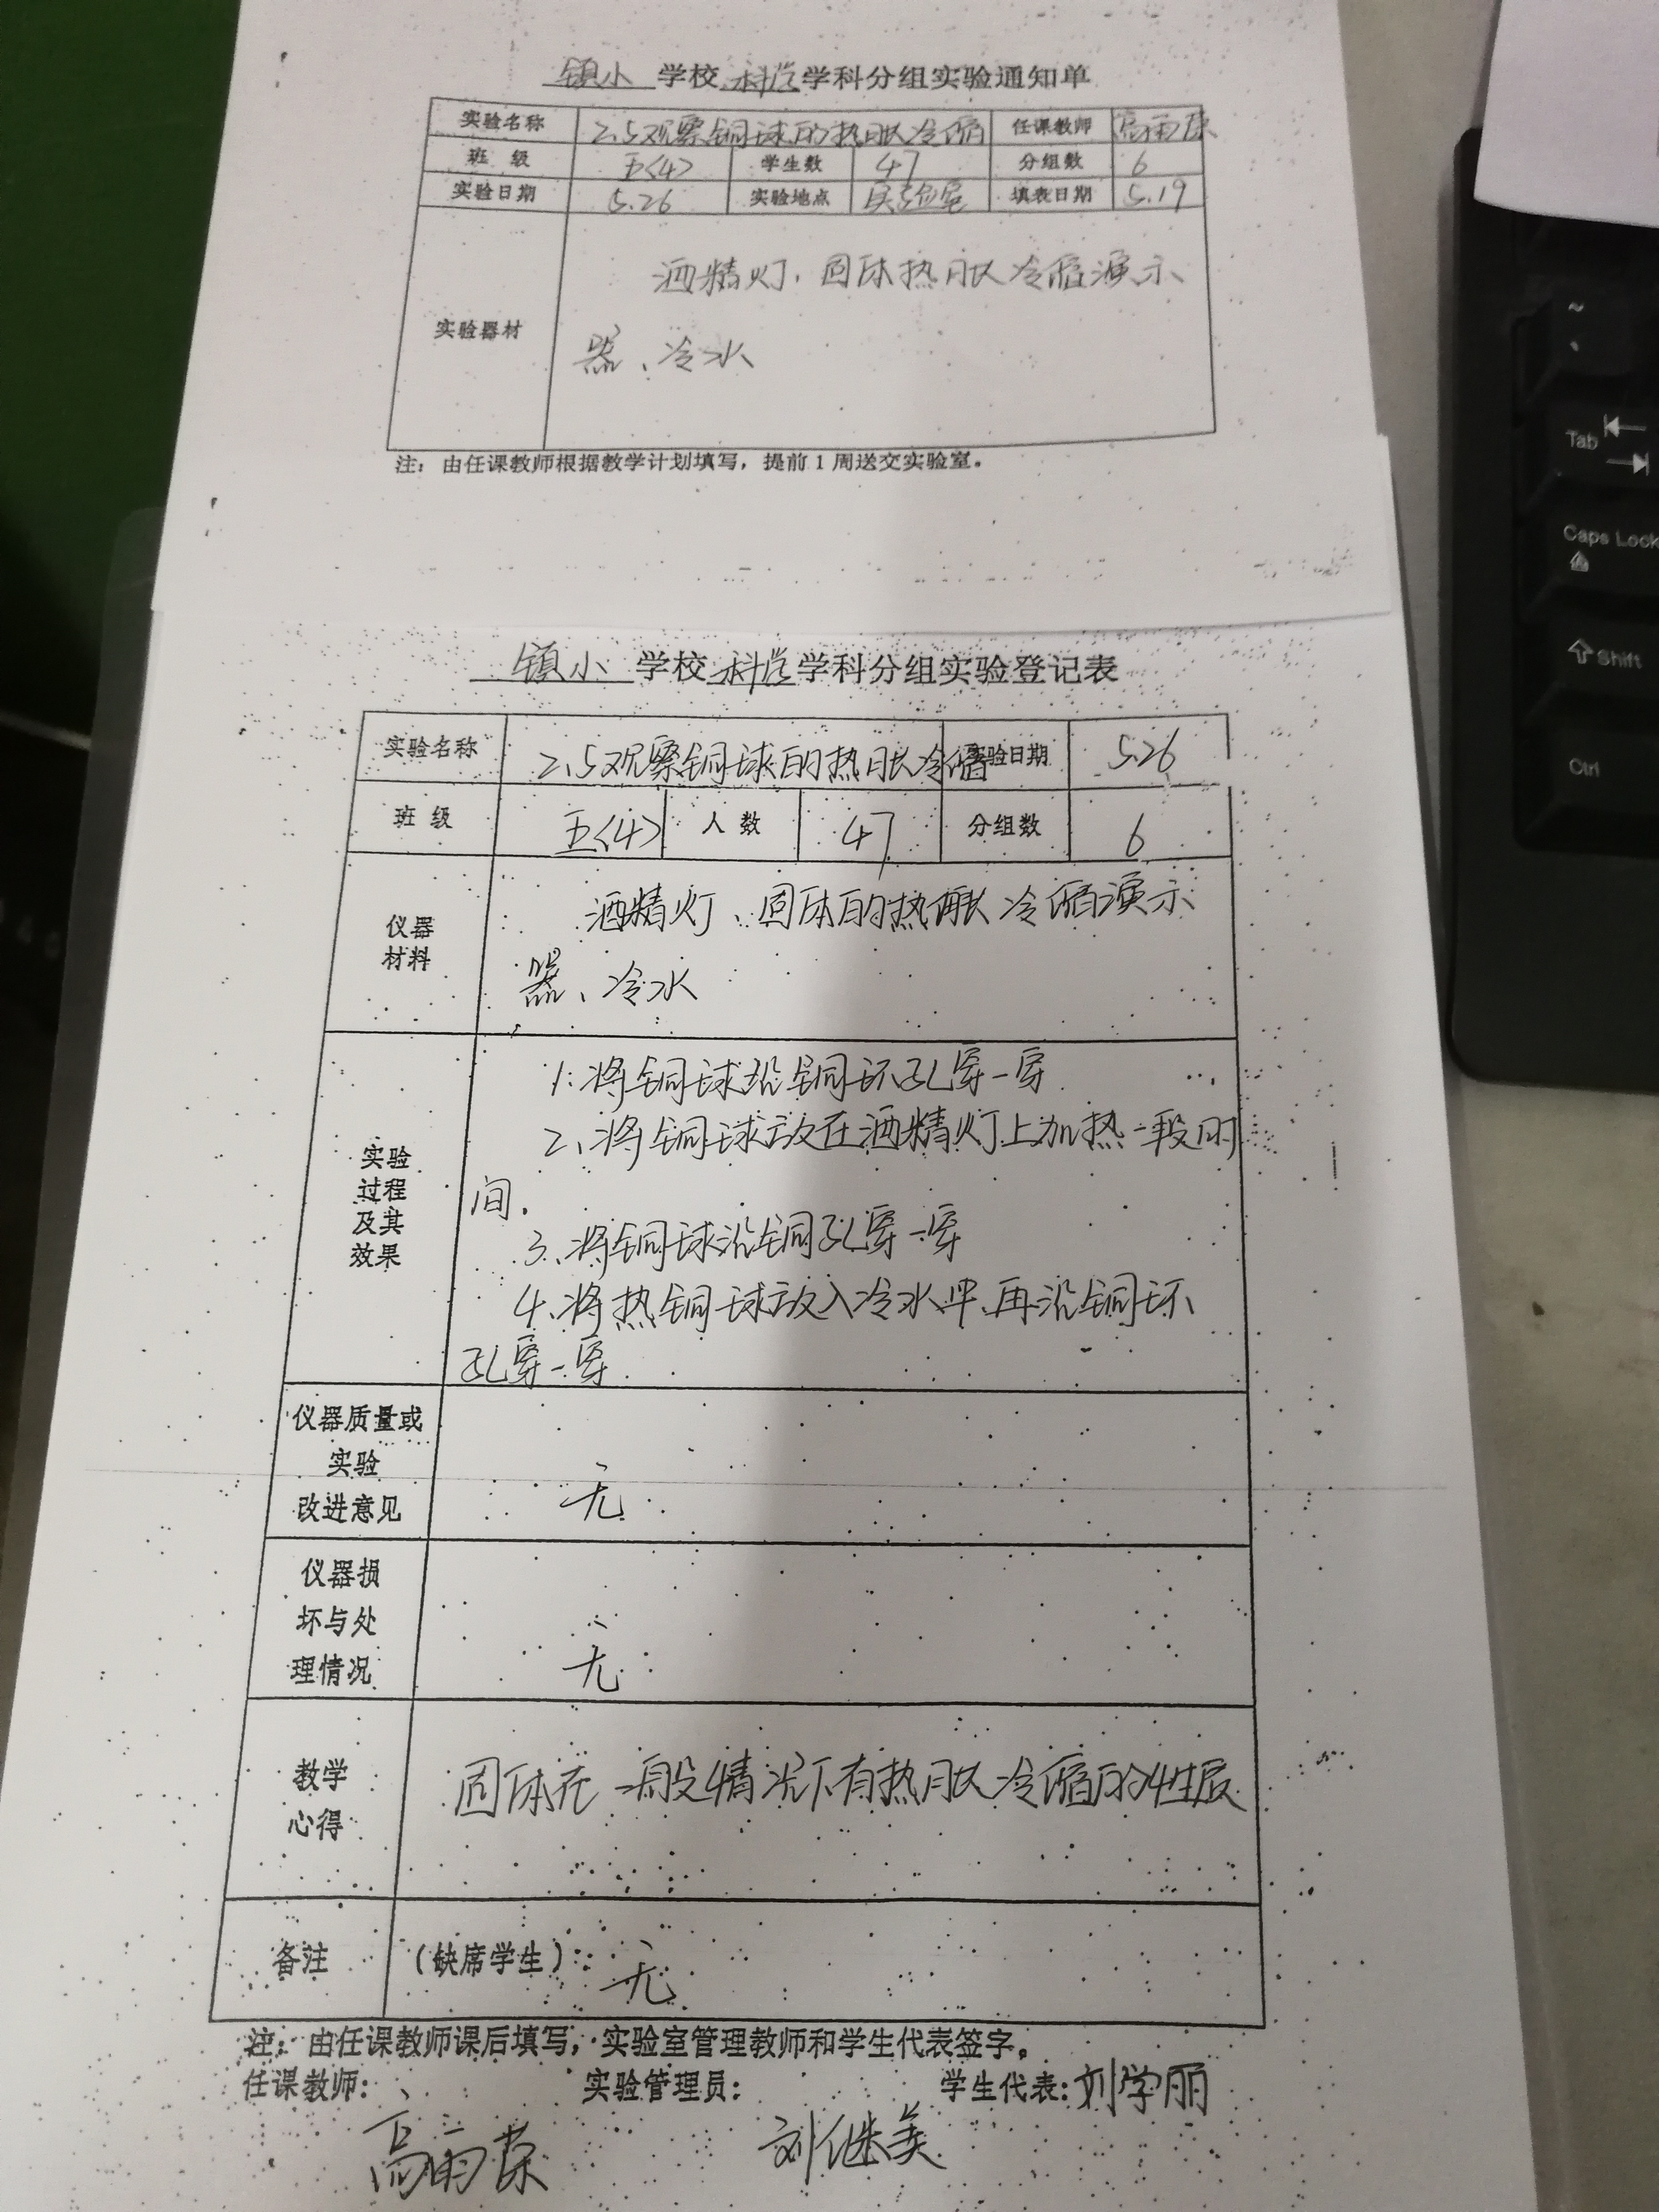 镇小 学校 科学 学科分组实验通知单
实验名称 2.5观察铜球的热胀冷缩 任课教师 高雨荣
班 级 五<4> 学生数 47 分组数 6
实验日期 5.26 实验地点 实验室 填表日期 5.19
酒精灯、固体热胀冷缩演示
实验器材
器、冷水
注：由任课教师根据教学计划填写，提前1周送交实验室。
镇小 学校 科学 学科分组实验登记表
实验名称 2.5观察铜球的热胀冷缩 实验日期 5.26
班 级 五<4> 人 数 47 分组数 6
酒精灯、固体的热胀冷缩演示
仪器
材料
器、冷水
1.将铜球沿铜环孔穿一穿
2、将铜球放在酒精灯上加热一段时
实验
过程
及其
效果
间.
3、将铜球沿铜孔穿一穿
4、将热铜球放入冷水中、再沿铜环
孔穿一穿.
仪器质量或
实验
改进意见
无
仪器损
坏与处
理情况
无
教学
心得
固体在一般情况下有热胀冷缩的性质
备注 (缺席学生): 无
注：由任课教师课后填写，实验室管理教师和学生代表签字。
任课教师: 实验管理员: 学生代表: 刘学丽
高雨荣 刘继美
~
Tab
Caps Lock
Shift
Ctrl